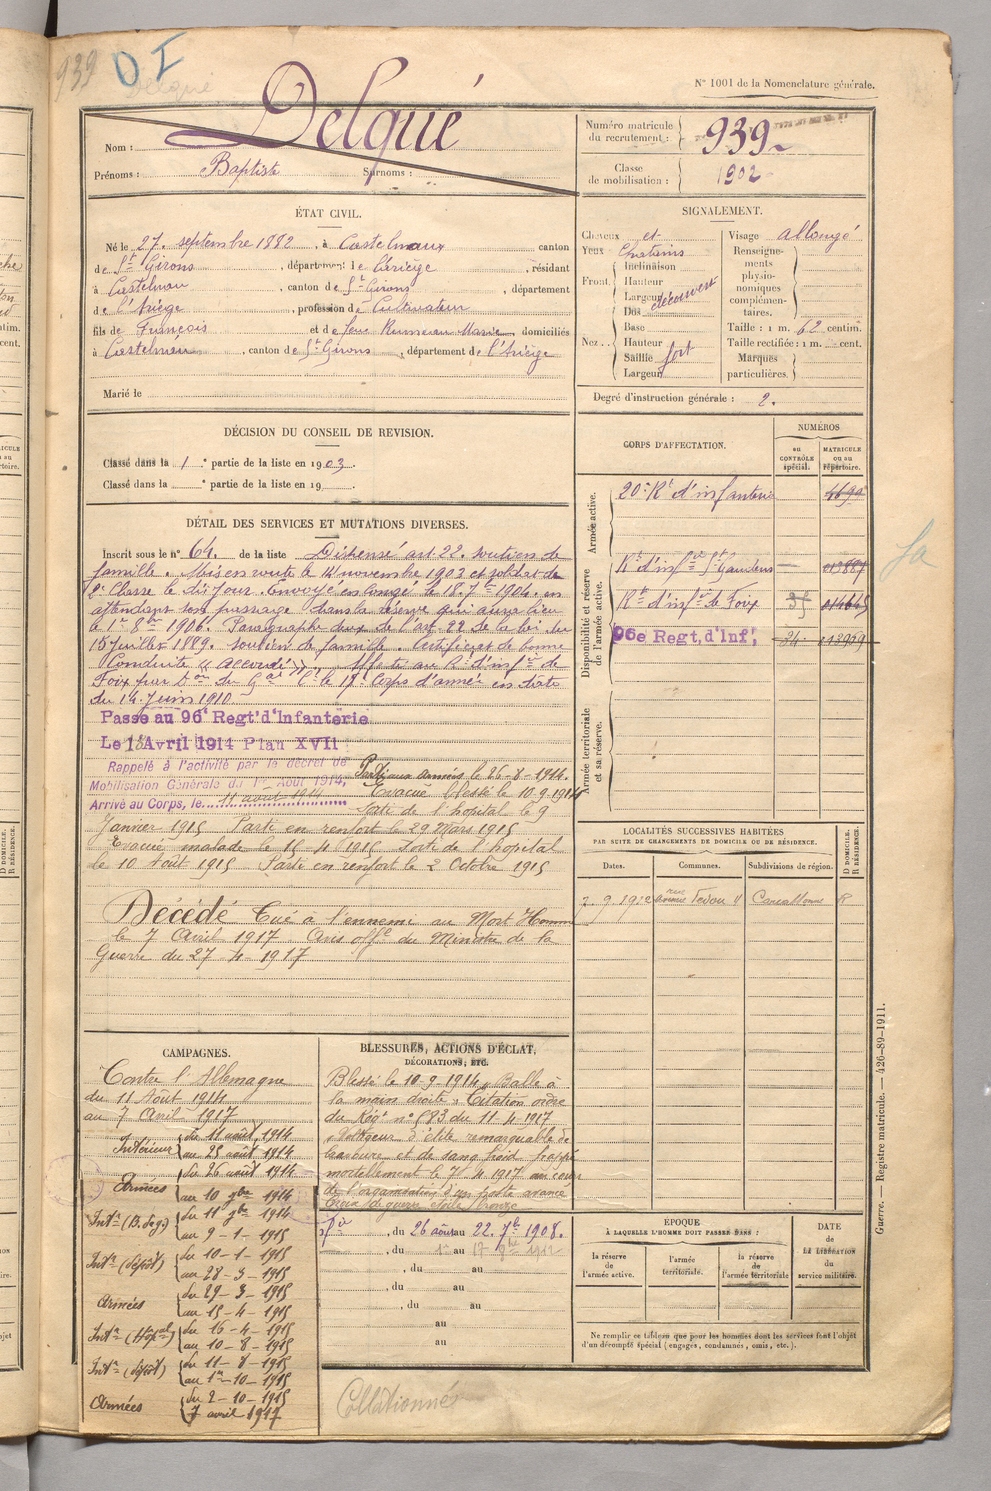 939
D I
Delqué
N° 1001 de la Nomenclature générale.
Nom : Delqué
Prénoms : Baptiste Surnoms :
Numéro matricule du recrutement : 939
Classe de mobilisation : 1902
ÉTAT CIVIL.
Né le 27 septembre 1882, à Castelnau canton
de St Girons, département de l'Ariège, résidant
à Castelnau, canton de St Girons, département
de l'Ariège, profession de Cultivateur
fils de François et de feue Marie, domiciliés
à Castelnau, canton de St Girons, département de l'Ariège
Marié le
SIGNALEMENT.
Cheveux et
Yeux Chatains
Front
Inclinaison
Hauteur
Largeur
découvert
Nez
Dos
Base
Hauteur
Saillie fort
Largeur
Visage allongé
Renseignements physionomiques complémentaires.
Taille : 1 m. 62 centim.
Taille rectifiée : 1 m. cent.
Marques particulières.
Degré d'instruction générale : 2.
DÉCISION DU CONSEIL DE REVISION.
Classé dans la 1e partie de la liste en 1903.
Classé dans la e partie de la liste en 19 .
DÉTAIL DES SERVICES ET MUTATIONS DIVERSES.
Inscrit sous le n° 64. de la liste Dispensé art 22. soutien de
famille. Mis en route le 14 novembre 1903 et soldat de
2e Classe le dit jour. Envoyé en congé le 18. 7bre 1904. en
attendant son passage dans la réserve qui aura lieu
le 1er 8bre 1906. Paragraphe deux de l'art 22 de la loi du
15 juillet 1889. soutien de famille. Certificat de bonne
Conduite « accordé ». Affecté au Rt d'infrie de
Foix par Don du Gal Ct le 17e Corps d'armée en date
du 14 Juin 1910
Passé au 96e Regt d'Infanterie
Le 1er Avril 1914 Plan XVII
Rappelé à l'activité par le décret de
Mobilisation Générale du 1er Août 1914,
Arrivé au Corps, le 11 août 1914
Parti aux armées le 26-8-1914.
Evacué blessé le 10.9.1914
Sorti de l'hopital le 9
Janvier 1915 Parti en renfort le 29 Mars 1915
Evacué malade le 15 4 1915 Sorti de l'hopital
le 10 Août 1915 Parti en renfort le 2 Octobre 1915
Décédé Tué à l'ennemi au Mort Homme
le 7 Avril 1917 Avis offel du Ministre de la
Guerre du 27-4-1917
CORPS D'AFFECTATION.
NUMÉROS
au CONTRÔLE spécial.
MATRICULE ou au répertoire.
Armée active.
20e Rt d'infanterie 4699
Disponibilité et réserve de l'armée active.
Rt d'infie St Gaudens 013887
Rt d'infie de Foix
96e Regt. d'Inf.
Armée territoriale et sa réserve.
LOCALITÉS SUCCESSIVES HABITÉES
PAR SUITE DE CHANGEMENTS DE DOMICILE OU DE RÉSIDENCE.
Dates.
Communes.
Subdivisions de région.
D DOMICILE.
R RÉSIDENCE.
7. 9. 1912 Carcassonne R
CAMPAGNES.
Contre l'Allemagne
du 11 Août 1914
au 7 Avril 1917
Intérieur du 11 août 1914
au 25 août 1914
Armées du 26 août 1914
au 10 9bre 1914
Intr (B. de g.) du 11 9bre 1914
au 9-1-1915
Intr (dépôt) du 10-1-1915
au 28-3-1915
Armées du 29-3-1915
au 15-4-1915
Intr (Hôpal) du 16-4-1915
au 10-8-1915
Intr (dépôt) du 11-8-1915
au 1er-10-1915
Armées du 2-10-1915
7 avril 1917
BLESSURES, ACTIONS D'ÉCLAT,
DÉCORATIONS, ETC.
Blessé le 10-9-1914 Balle à
la main droite. Citation ordre
du Régt n° 583 du 11-4-1917
« Voltigeur d'élite remarquable de
bravoure et de sang froid frappé
mortellement le 7/4 1917 au cours
de l'organisation d'un poste avancé
Croix de guerre étoile bronze
du 26 août au 22. 7bre 1908.
du 1er au 17 9bre 1912
, du au
, du au
, du au
au
au
ÉPOQUE
À LAQUELLE L'HOMME DOIT PASSER DANS :
la réserve de l'armée active.
l'armée territoriale.
la réserve de l'armée territoriale
DATE de LA LIBÉRATION du service militaire.
Ne remplir ce tableau que pour les hommes dont les services font l'objet
d'un décompte spécial (engagés, condamnés, omis, etc.).
Guerre. — Registre matricule. — 426-89-1911.
Collationné